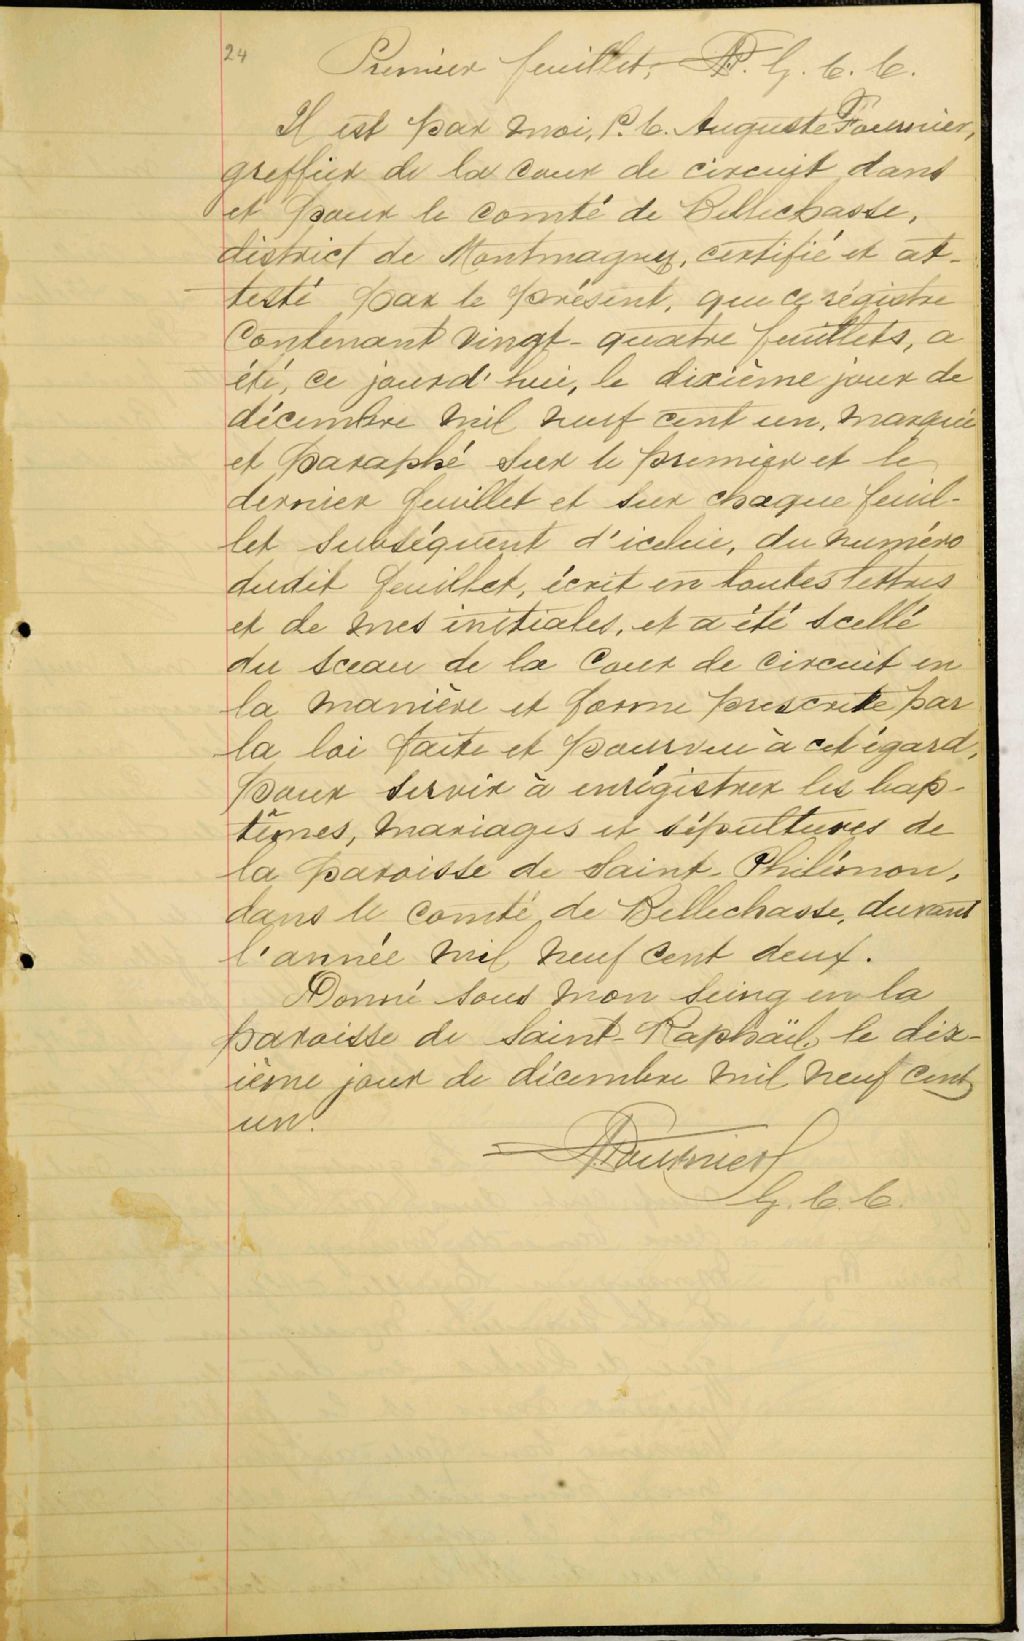 24
Premier feuillet, AF. G. C. C.
Il est par moi, P. C. Auguste Fournier,
greffier de la cour de circuit dans
et pour le comté de Bellechasse,
district de Montmagny, certifié et at-
testé par le présent, que ce régistre
contenant vingt-quatre feuillets, a
été, ce jourd'hui, le dixième jour de
décembre mil neuf cent un, marqué
et paraphé sur le premier et le
dernier feuillet et sur chaque feuil-
let subséquent d'icelui, du numéro
dudit feuillet, écrit en toutes lettres
et de mes initiales, et a été scellé
du sceau de la Cour de circuit en
la manière et forme prescrite par
la loi faite et pourvu à cet égard,
pour servir à enrégistrer les bap-
têmes, mariages et sépultures de
la paroisse de Saint-Philémon,
dans le comté de Bellechasse, durant
l'année mil neuf cent deux.
Donné sous mon seing en la
paroisse de Saint-Raphaël, le dix-
ième jour de décembre mil neuf cent
un.
AFournier
G. C. C.